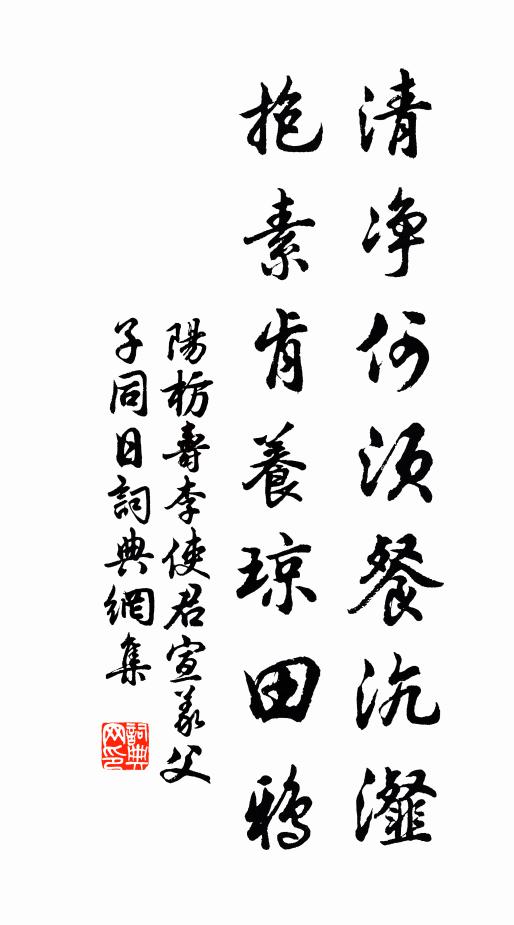 清净何須餐沆瀣
抱素肯養琼田鴉
陽枋壽李使君宣義父
子同日詞典網集
詞典網印